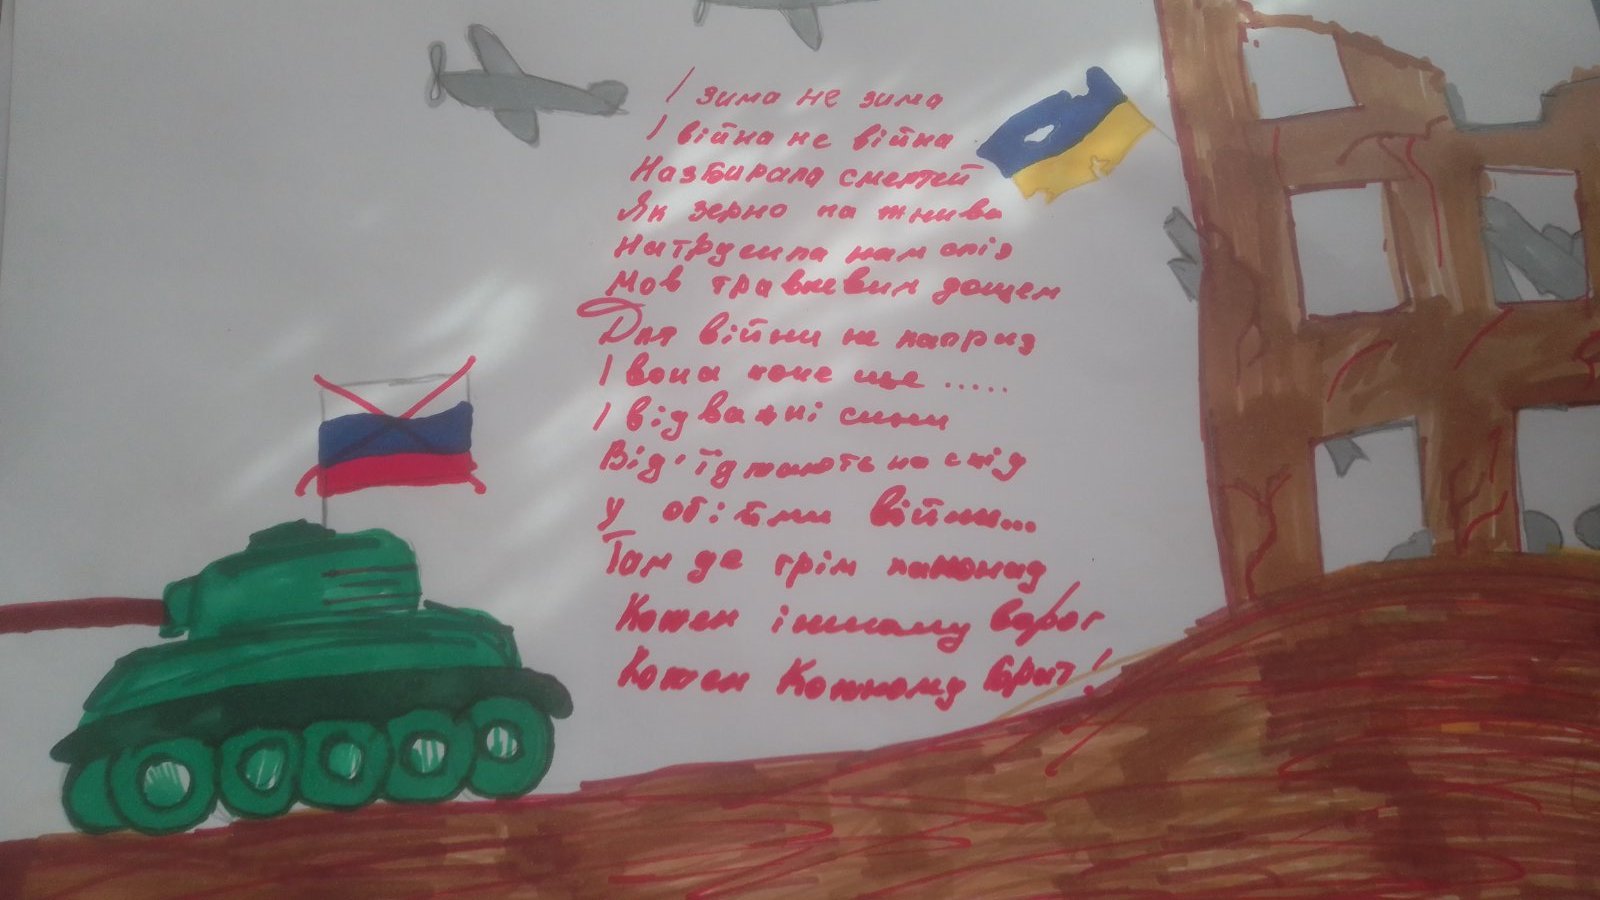 І зима не зима
І війна не війна
Назбирала смертей
Як зерно на жнива
Натрусила нам сліз
Мов травневим дощем
Для війни не каприз
І вона хоче ще .....
І відважні сини
Від'їджають на схід
У обійми війни...
Там де грім канонад
Кожен іншому ворог
Кожен Кожному брат!